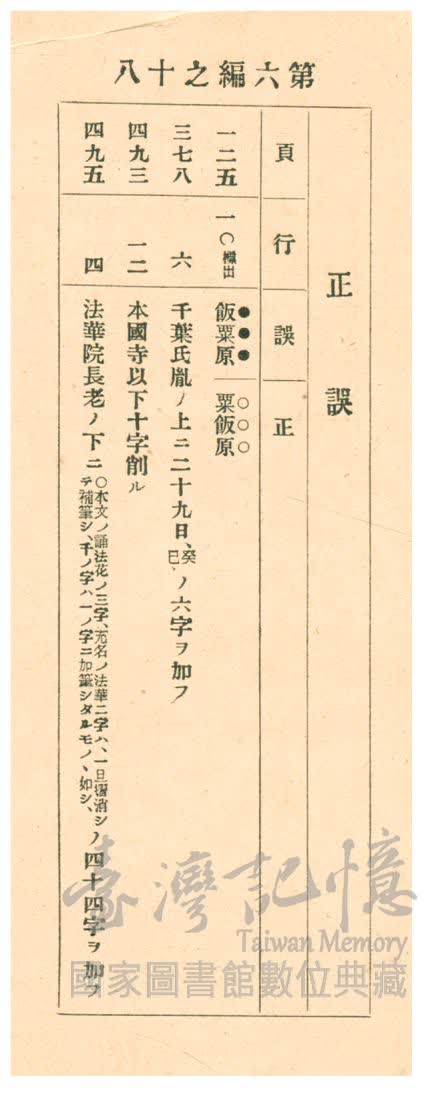 第六編之十八
正誤
頁 行 誤 正
一二五 一〇標出 飯粟原 粟飯原
三七八 六 千葉氏胤ノ上ニ二十九日、癸巳、ノ六字ヲ加フ
四九三 一二 本國寺以下十字削ル
四九五 四 法華院長老ノ下ニ〇本文ノ誦法花ノ三字、充名ノ法華二字ハ、一旦摺消シテ補筆シ、千ノ字ハ一ノ字ニ加筆シタルモノヽ如シ、ノ四十四字ヲ加フ
臺灣記憶
Taiwan Memory
國家圖書館數位典藏